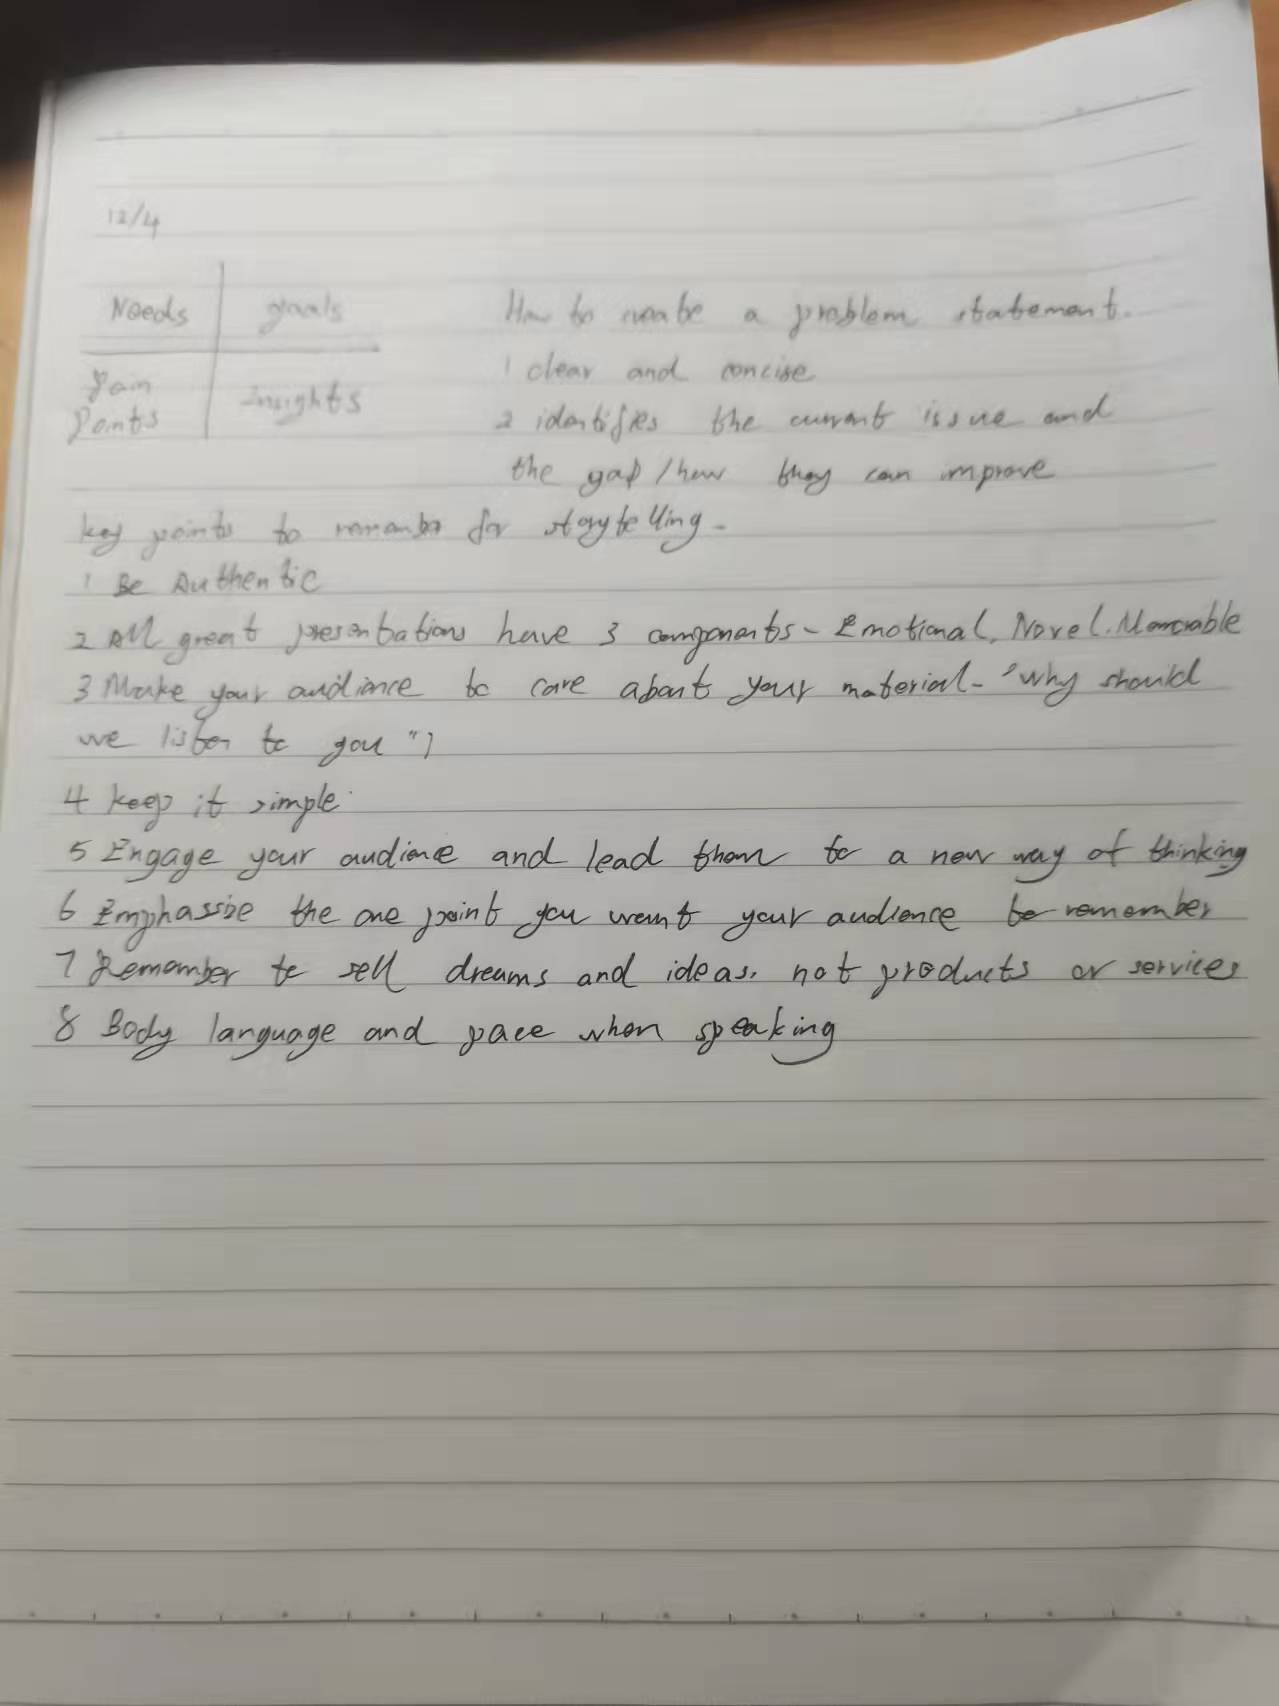 12/4
Needs goals
Pain Points Insights
How to create a problem statement.
1 clear and concise
2 identifies the current issue and
the gap / how they can improve
key points to remember for storytelling -
1 Be Authentic
2 All great presentations have 3 components - Emotional, Novel. Memorable
3 Make your audiance to care about your material - "why should
we listen to you"?
4 keep it simple.
5 Engage your audience and lead them to a new way of thinking
6 Emphassize the one point you want your audience to remember
7 Remember to sell dreams and ideas, not products or services
8 Body language and pace when speaking